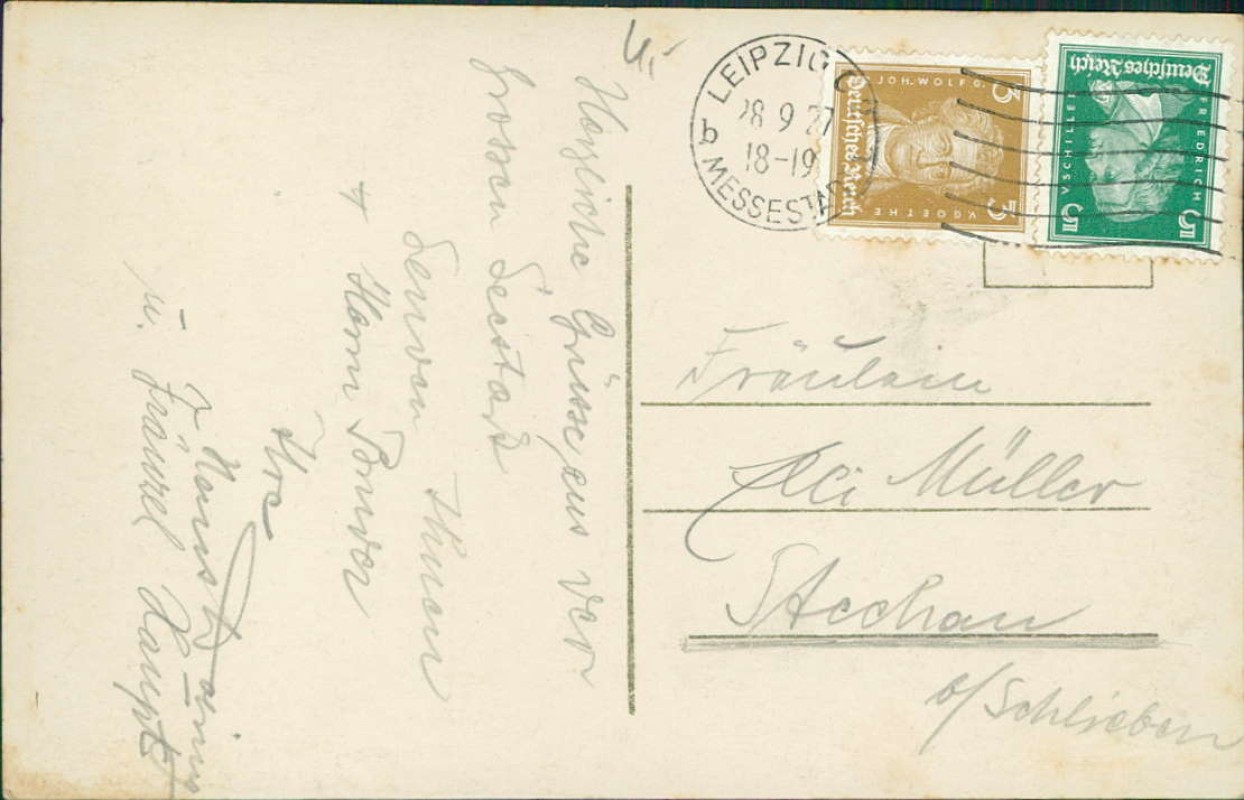 Herzliche Grüsse aus der
grossen Seestadt
senden Ihnen
Ihre
u. Fränzel Haupt
LEIPZIG
28 9 27
18-19
b MESSESTADT
3 JOH. WOLFG. V. GOETHE 3
Deutsches Reich
5 FRIEDRICH V. SCHILLER 5
Deutsches Reich
Fräulein
Elli Müller
Stechau
b/Schlieben